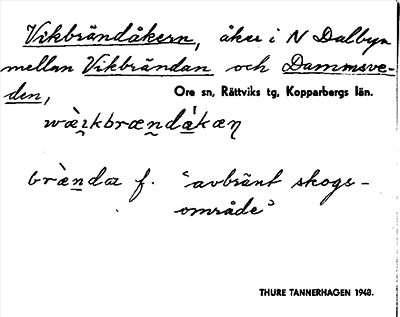 Vikbrändåkern, åker i N Dalbyn
mellan Vikbrändan och Dammsve-
den,
Ore sn, Rättviks tg, Kopparbergs län.
brænda f. "avbränt skogs-
område"
THURE TANNERHAGEN 1948.